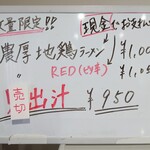 数量限定!!
現金でお支払
濃厚地鶏ラーメン ¥1,0
〃 RED(ピリ辛) ¥1,05
売切
出汁 ¥950